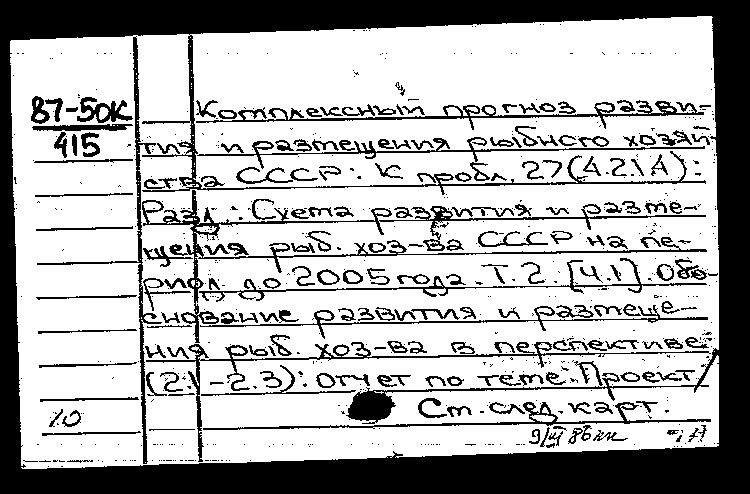 87-50К
415
Комплексный прогноз разви-
тия и размещения рыбного хозяй-
ства СССР: К пробл. 27(4.21А):
Разд.: Схема развития и разме-
щения рыб. хоз-ва СССР на пе-
риод до 2005 года. Т. 2. [Ч.1]. Обо-
снование развития и размеще-
ния рыб. хоз-ва в перспективе
(2.1-2.3): отчет по теме. Проект/
См. след. карт.
10